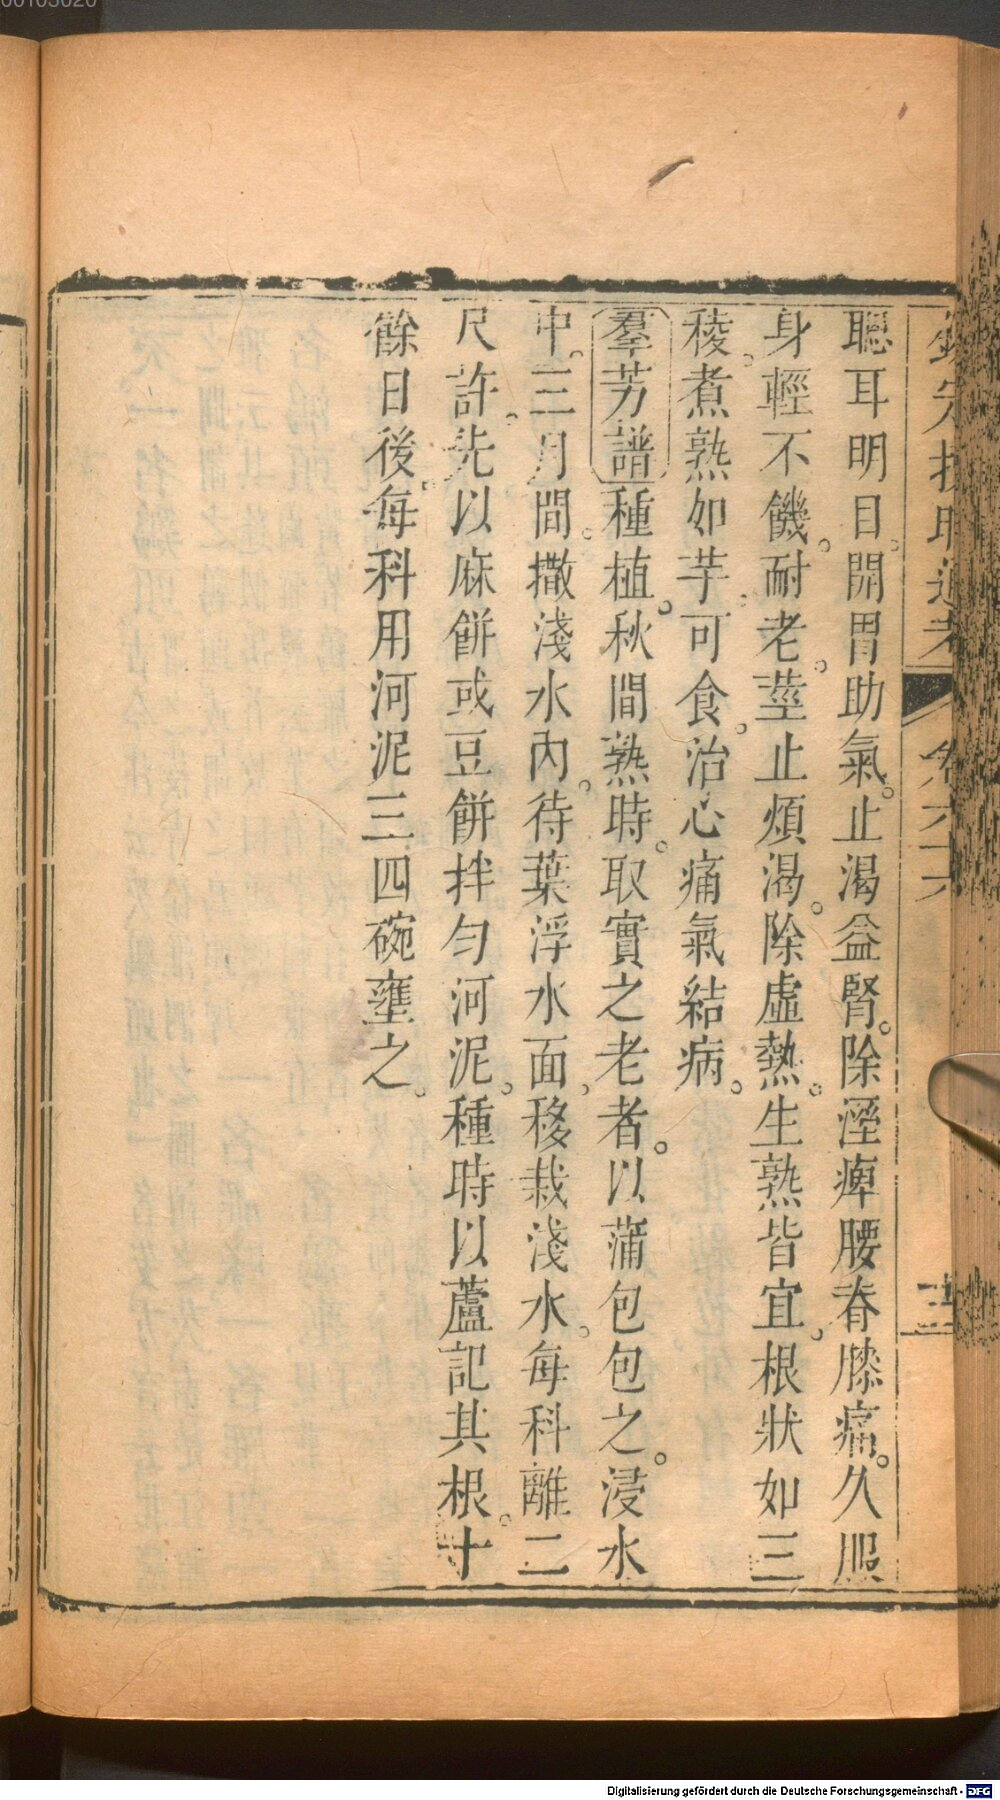 欽定授時通考 卷六十六
聰耳明目。開胃助氣。止渴益腎。除溼痺腰脊膝痛。久服
身輕不饑。耐老。莖止煩渴。除虛熱。生熟皆宜。根狀如三
稜。煮熟如芋可食。治心痛氣結病。
羣芳譜種植。秋間熟時。取實之老者。以蒲包包之。浸水
中。三月間。撒淺水內。待葉浮水面。移栽淺水。每科離二
尺許。先以麻餅或豆餅拌勻河泥。種時以蘆記其根。十
餘日後。每科用河泥三四碗壅之。
Digitalisierung gefördert durch die Deutsche Forschungsgemeinschaft - DFG